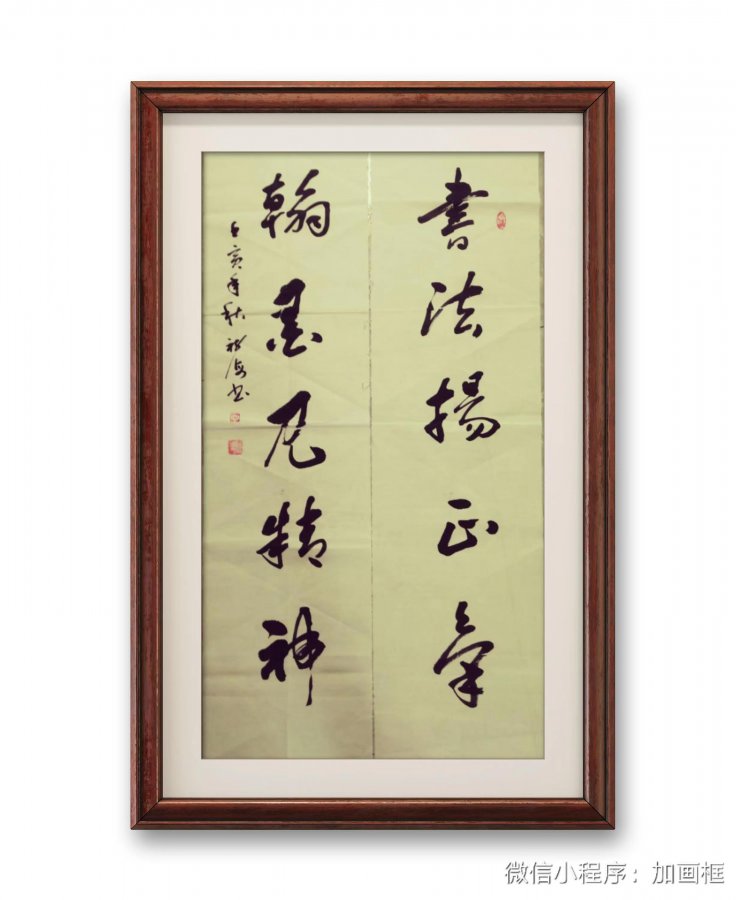 書法揚正氣
翰墨見精神
亥年秋
书
微信小程序：加画框